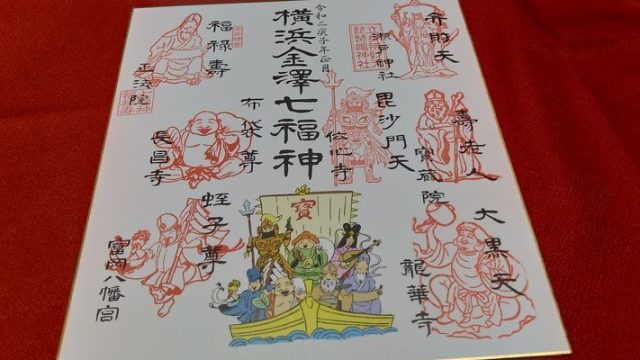 令和二庚子年正月
横浜金澤七福神
弁財天
瀬戸神社
琵琶嶋神社
壽老人
寳蔵院
大黒天
龍華寺
毘沙門天
伝心寺
布袋尊
長昌寺
福禄壽
正法院
蛭子尊
富岡八幡宮
寶